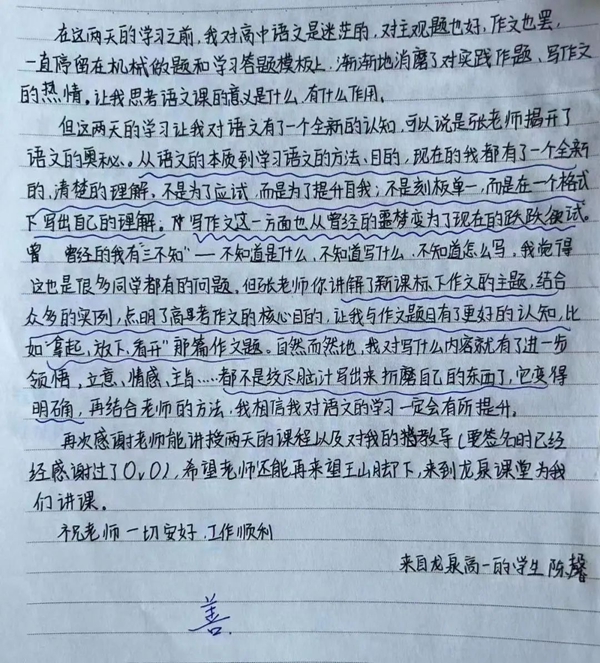 在这两天的学习之前,我对高中语文是迷茫的,对主观题也好,作文也罢,
一直停留在机械做题和学习答题模板上,渐渐地消磨了对实践作题、写作文
的热情。让我思考语文课的意义是什么,有什么作用。
但这两天的学习让我对语文有了一个全新的认知,可以说是张老师揭开了
语文的奥秘。从语文的本质到学习语文的方法、目的,现在的我都有了一个全新
的、清楚的理解,不是为了应试,而是为了提升自我;不是刻板单一,而是在一个格式
下写出自己的理解。写作文这一方面也从曾经的噩梦变为了现在的跃跃欲试。
曾经的我有"三不知"——不知道是什么、不知道写什么、不知道怎么写,我觉得
这也是很多同学都有的问题。但张老师你讲解了新课标下作文的主题,结合
众多的实例,点明了高考作文的核心目的,让我与作文题目有了更好的认知,比
如"拿起,放下,看开"那篇作文题。自然而然地,我对写什么内容就有了进一步
领悟,立意、情感、主旨……都不是绞尽脑汁写出来折磨自己的东西了,它变得
明确,再结合老师的方法,我相信我对语文的学习一定会有所提升。
再次感谢老师能讲授两天的课程以及对我的教导(要签名时已经
经感谢过了OvO),希望老师还能再来望王山脚下,来到龙泉课堂为我
们讲课。
祝老师一切安好,工作顺利
来自龙泉高一的学生 陈馨
善.